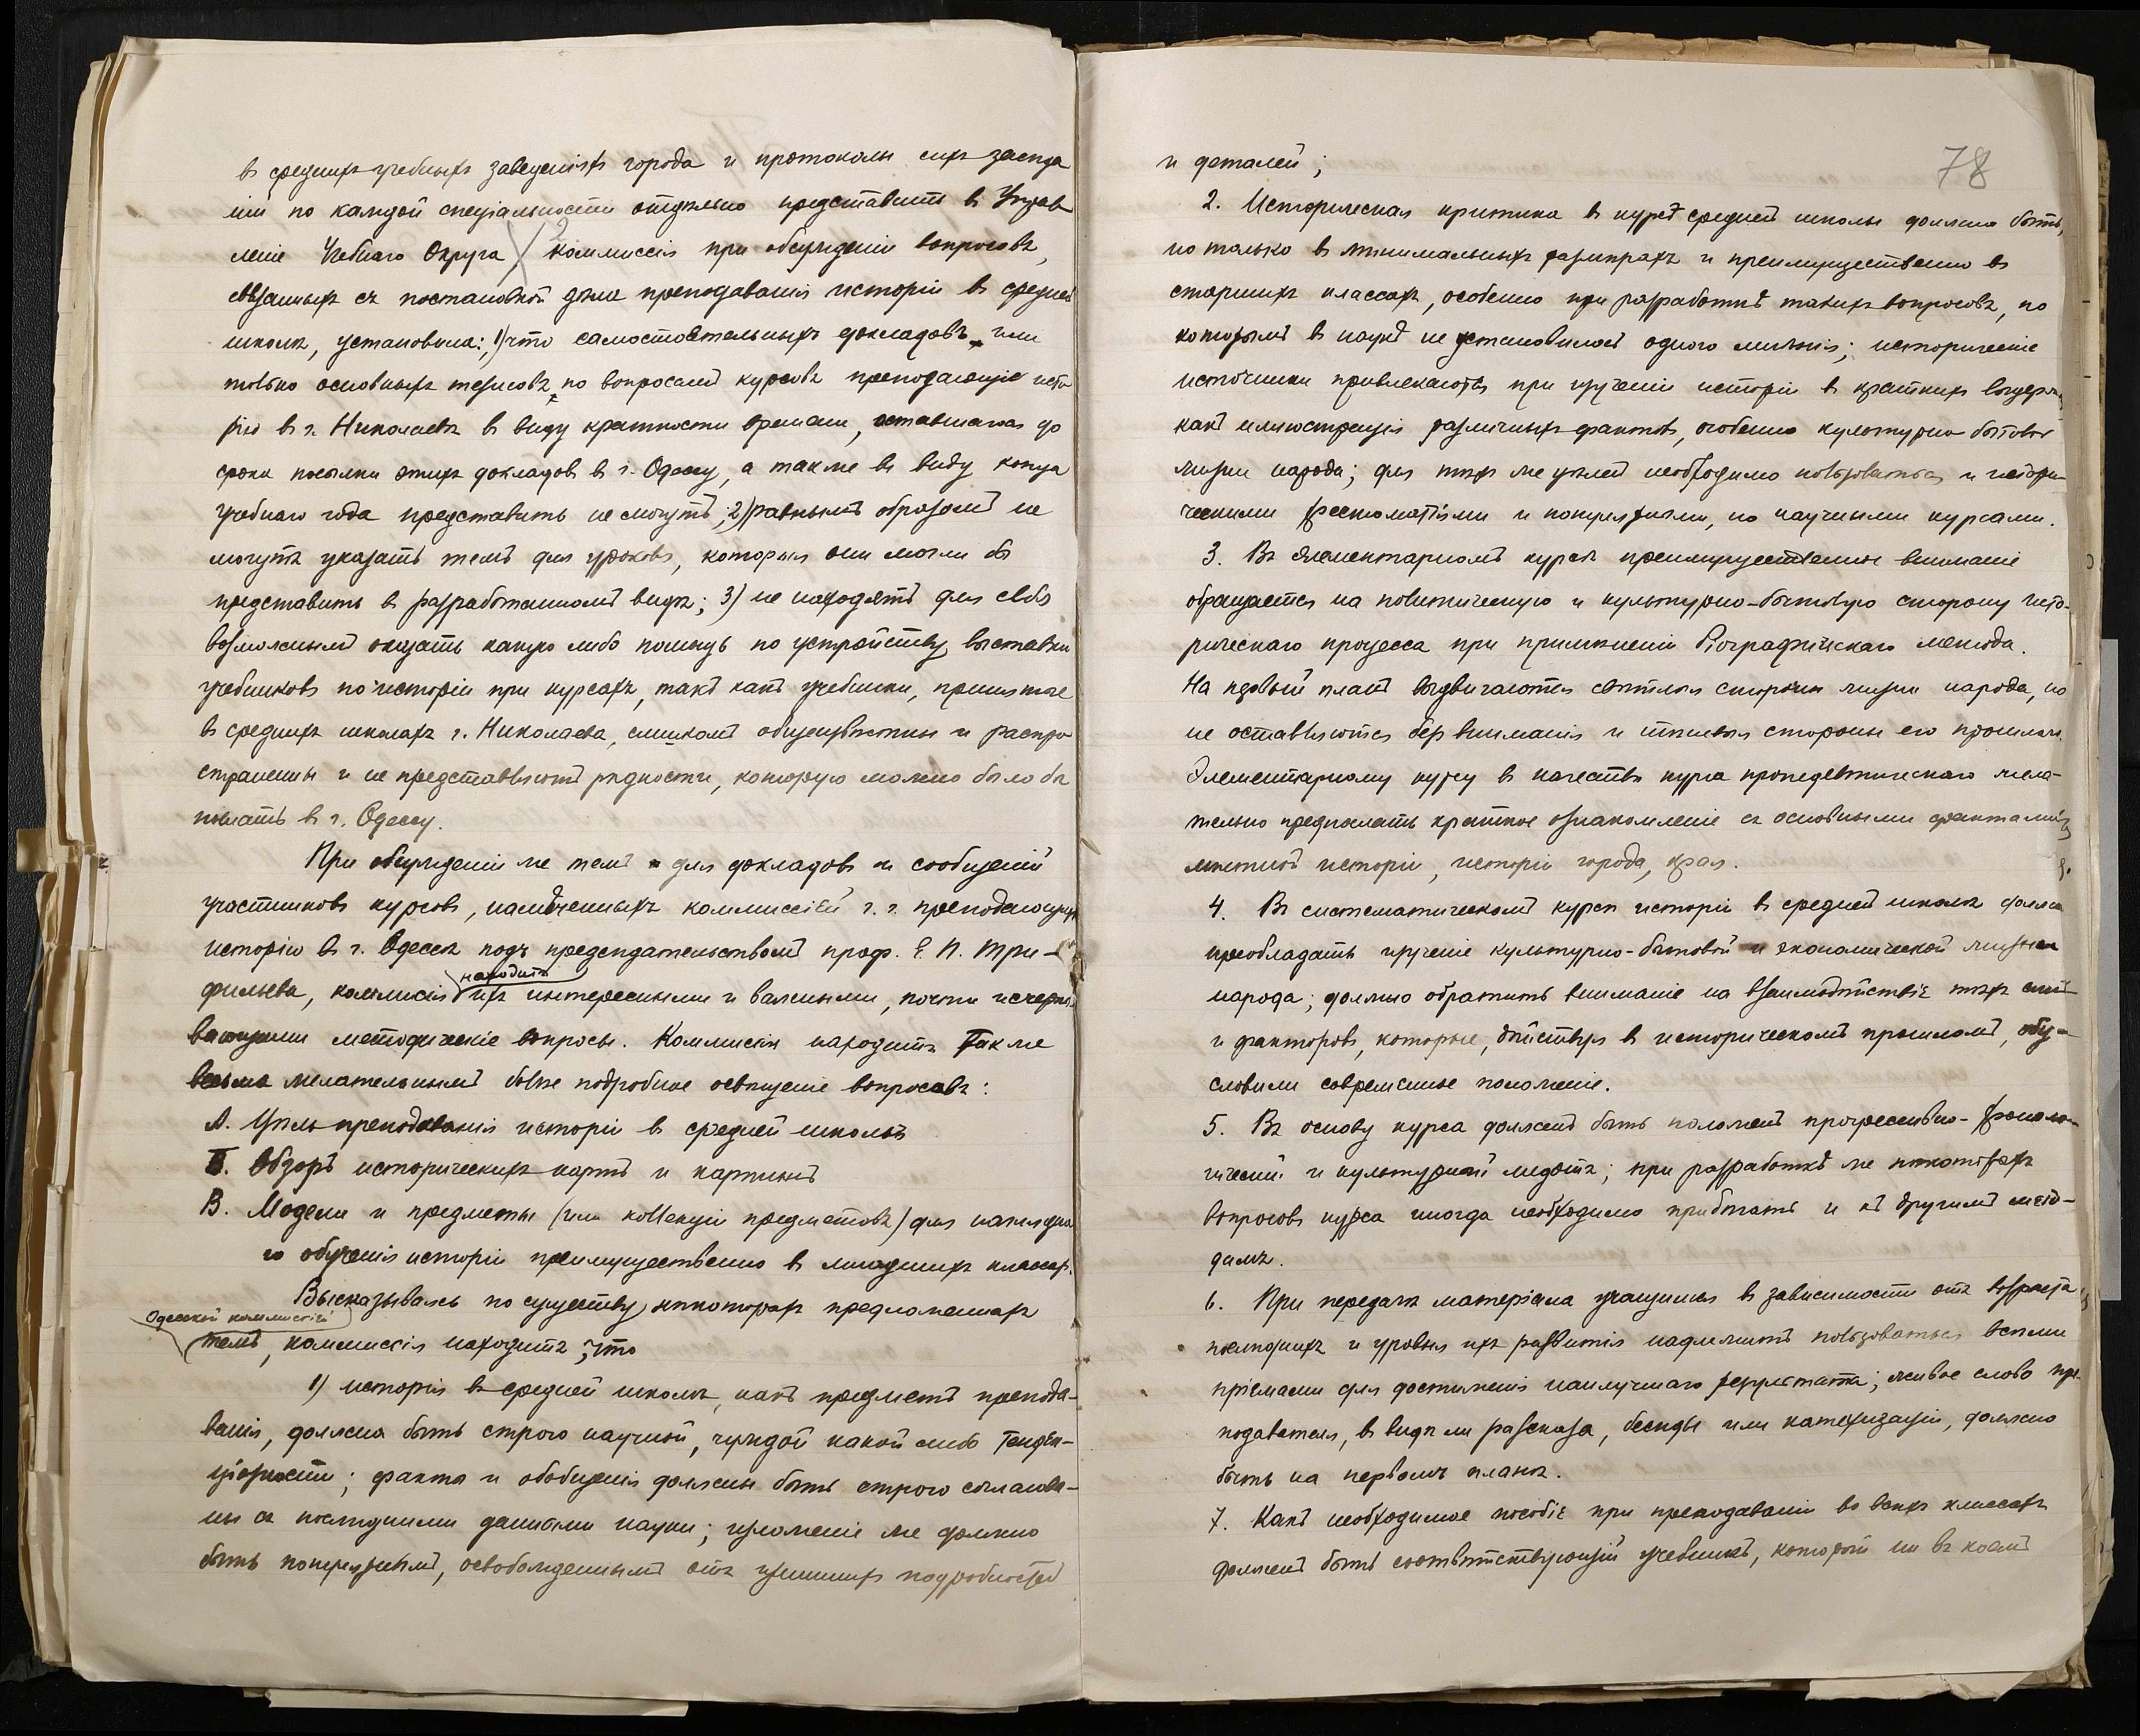 въ среднихъ учебныхъ заведеніяхъ города и протоколы сихъ заседа
ній по каждой спеціальности отдѣльно представитъ въ Управ
леніе Учебнаго Округа коммиссія при обсужденіи вопросовъ,
связанныхъ съ постановкой дѣла преподаванія исторіи въ средней
школѣ, установила: 1) что самостоятельныхъ докладовъ или
только основныхъ тезисовъ по вопросамъ курсовъ преподающіе исто
рію въ г. Николаевѣ въ виду краткости времени, оставшагося до
срока посылки этихъ докладовъ въ г. Одессу, а также въ виду конца
учебнаго года представить не могутъ; 2) равнымъ образомъ не
могутъ указать темъ для уроковъ, которыя они могли бы
представить въ разработанномъ видѣ; 3) не находятъ для себя
возможнымъ оказать какую либо помощь по устройству выставки
учебниковъ по исторіи при курсахъ, такъ какъ учебники, принятые
въ среднихъ школахъ г. Николаева, слишкомъ общеизвѣстны и распро
странены и не представляютъ рѣдкости, которую можно было бы
послать въ г. Одессу.
При обсужденіи же темъ для докладовъ и сообщеній
участниковъ курсовъ, намѣченныхъ коммиссіей г. г. преподающихъ
исторію въ г. Одессѣ подъ предсѣдательствомъ проф. Е. П. Три-
фильева, коммисія находитъ ихъ интересными и важными, почти исчерпы
вающими методическіе вопросы. Коммисія находитъ также
весьма желательнымъ болѣе подробное освѣщеніе вопросовъ:
А. Цѣль преподаванія исторіи въ средней школѣ
Б. Обзоръ историческихъ картъ и картинъ
В. Модели и предметы (или коллекціи предметовъ) для наглядна
го обученія исторіи преимущественно въ младшихъ классах.
Высказываясь по существу нѣкоторыхъ предложенныхъ
Одесской коммиссіей
темъ, коммиссія находитъ, что
1) исторія въ средней школѣ, какъ предметъ препода-
ванія, должна быть строго научной, чуждой какой либо тенден-
ціозности; факты и обобщенія должны быть строго согласова-
ны съ послѣдними данными науки; изложеніе же должно
быть конкретнымъ, освобожденнымъ отъ излишнихъ подробностей
78
и деталей;
2. Историческая критика въ курсѣ средней школы должна быть,
но только въ минимальныхъ размѣрахъ и преимущественно въ
старшихъ классахъ, особенно при разработкѣ такихъ вопросовъ, по
которымъ въ наукѣ не установилось одного мнѣнія; историческіе
источники привлекаются при изученіи исторіи въ краткихъ выдерж
какъ иллюстрація различныхъ фактовъ, особенно культурно бытовой
жизни народа; для тѣхъ же цѣлей необходимо пользоваться и истори-
ческими хрестоматіями и научными курсами.
3. Въ элементарномъ курсѣ преимущественное вниманіе
обращается на политическую и культурно-бытовую сторону исто-
рическаго процесса при примѣненіи біографическаго метода.
На первый планъ выдвигаются свѣтлыя стороны жизни народа, но
не оставляются безъ вниманія и тѣневыя стороны его прошлаго.
Элементарному курсу въ качествѣ курса пропедевтическаго жела-
тельно предпослать краткое ознакомленіе съ основными фактами
мѣстной исторіи, исторіи города, края.
4. Въ систематическомъ курсѣ исторіи въ средней школѣ должно
преобладать изученіе культурно-бытовой и экономической жизни
народа; должно обратить вниманіе на взаимодѣйствіе тѣхъ силъ
и факторовъ, которые, дѣйствуя въ историческомъ прошломъ, обу-
словили современное положеніе.
5. Въ основу курса долженъ быть положенъ прогрессивно-хроноло-
гическій и культурный методъ; при разработкѣ же нѣкоторыхъ
вопросовъ курса иногда необходимо прибѣгать и къ другимъ мето-
дамъ.
6. При передачѣ матеріала учащимся въ зависимости отъ возраста
послѣднихъ и уровня ихъ развитія надлежитъ пользоваться всѣми
пріемами для достиженія наилучшаго результата; живое слово пре-
подавателя, въ видѣ ли разсказа, бесѣды или катехизаціи, должно
быть на первомъ планѣ.
7. Какъ необходимое пособіе при преподаваніи во всѣхъ классахъ
долженъ быть соотвѣтствующій учебникъ, который ни въ коемъ